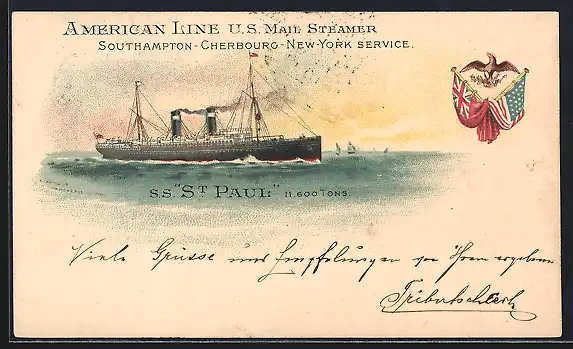 AMERICAN LINE U.S. MAIL STEAMER
SOUTHAMPTON-CHERBOURG-NEW-YORK SERVICE.
S.S. "ST PAUL" 11,600 TONS.
Viele Grüsse und Empfehlungen von Ihrem ergebenen